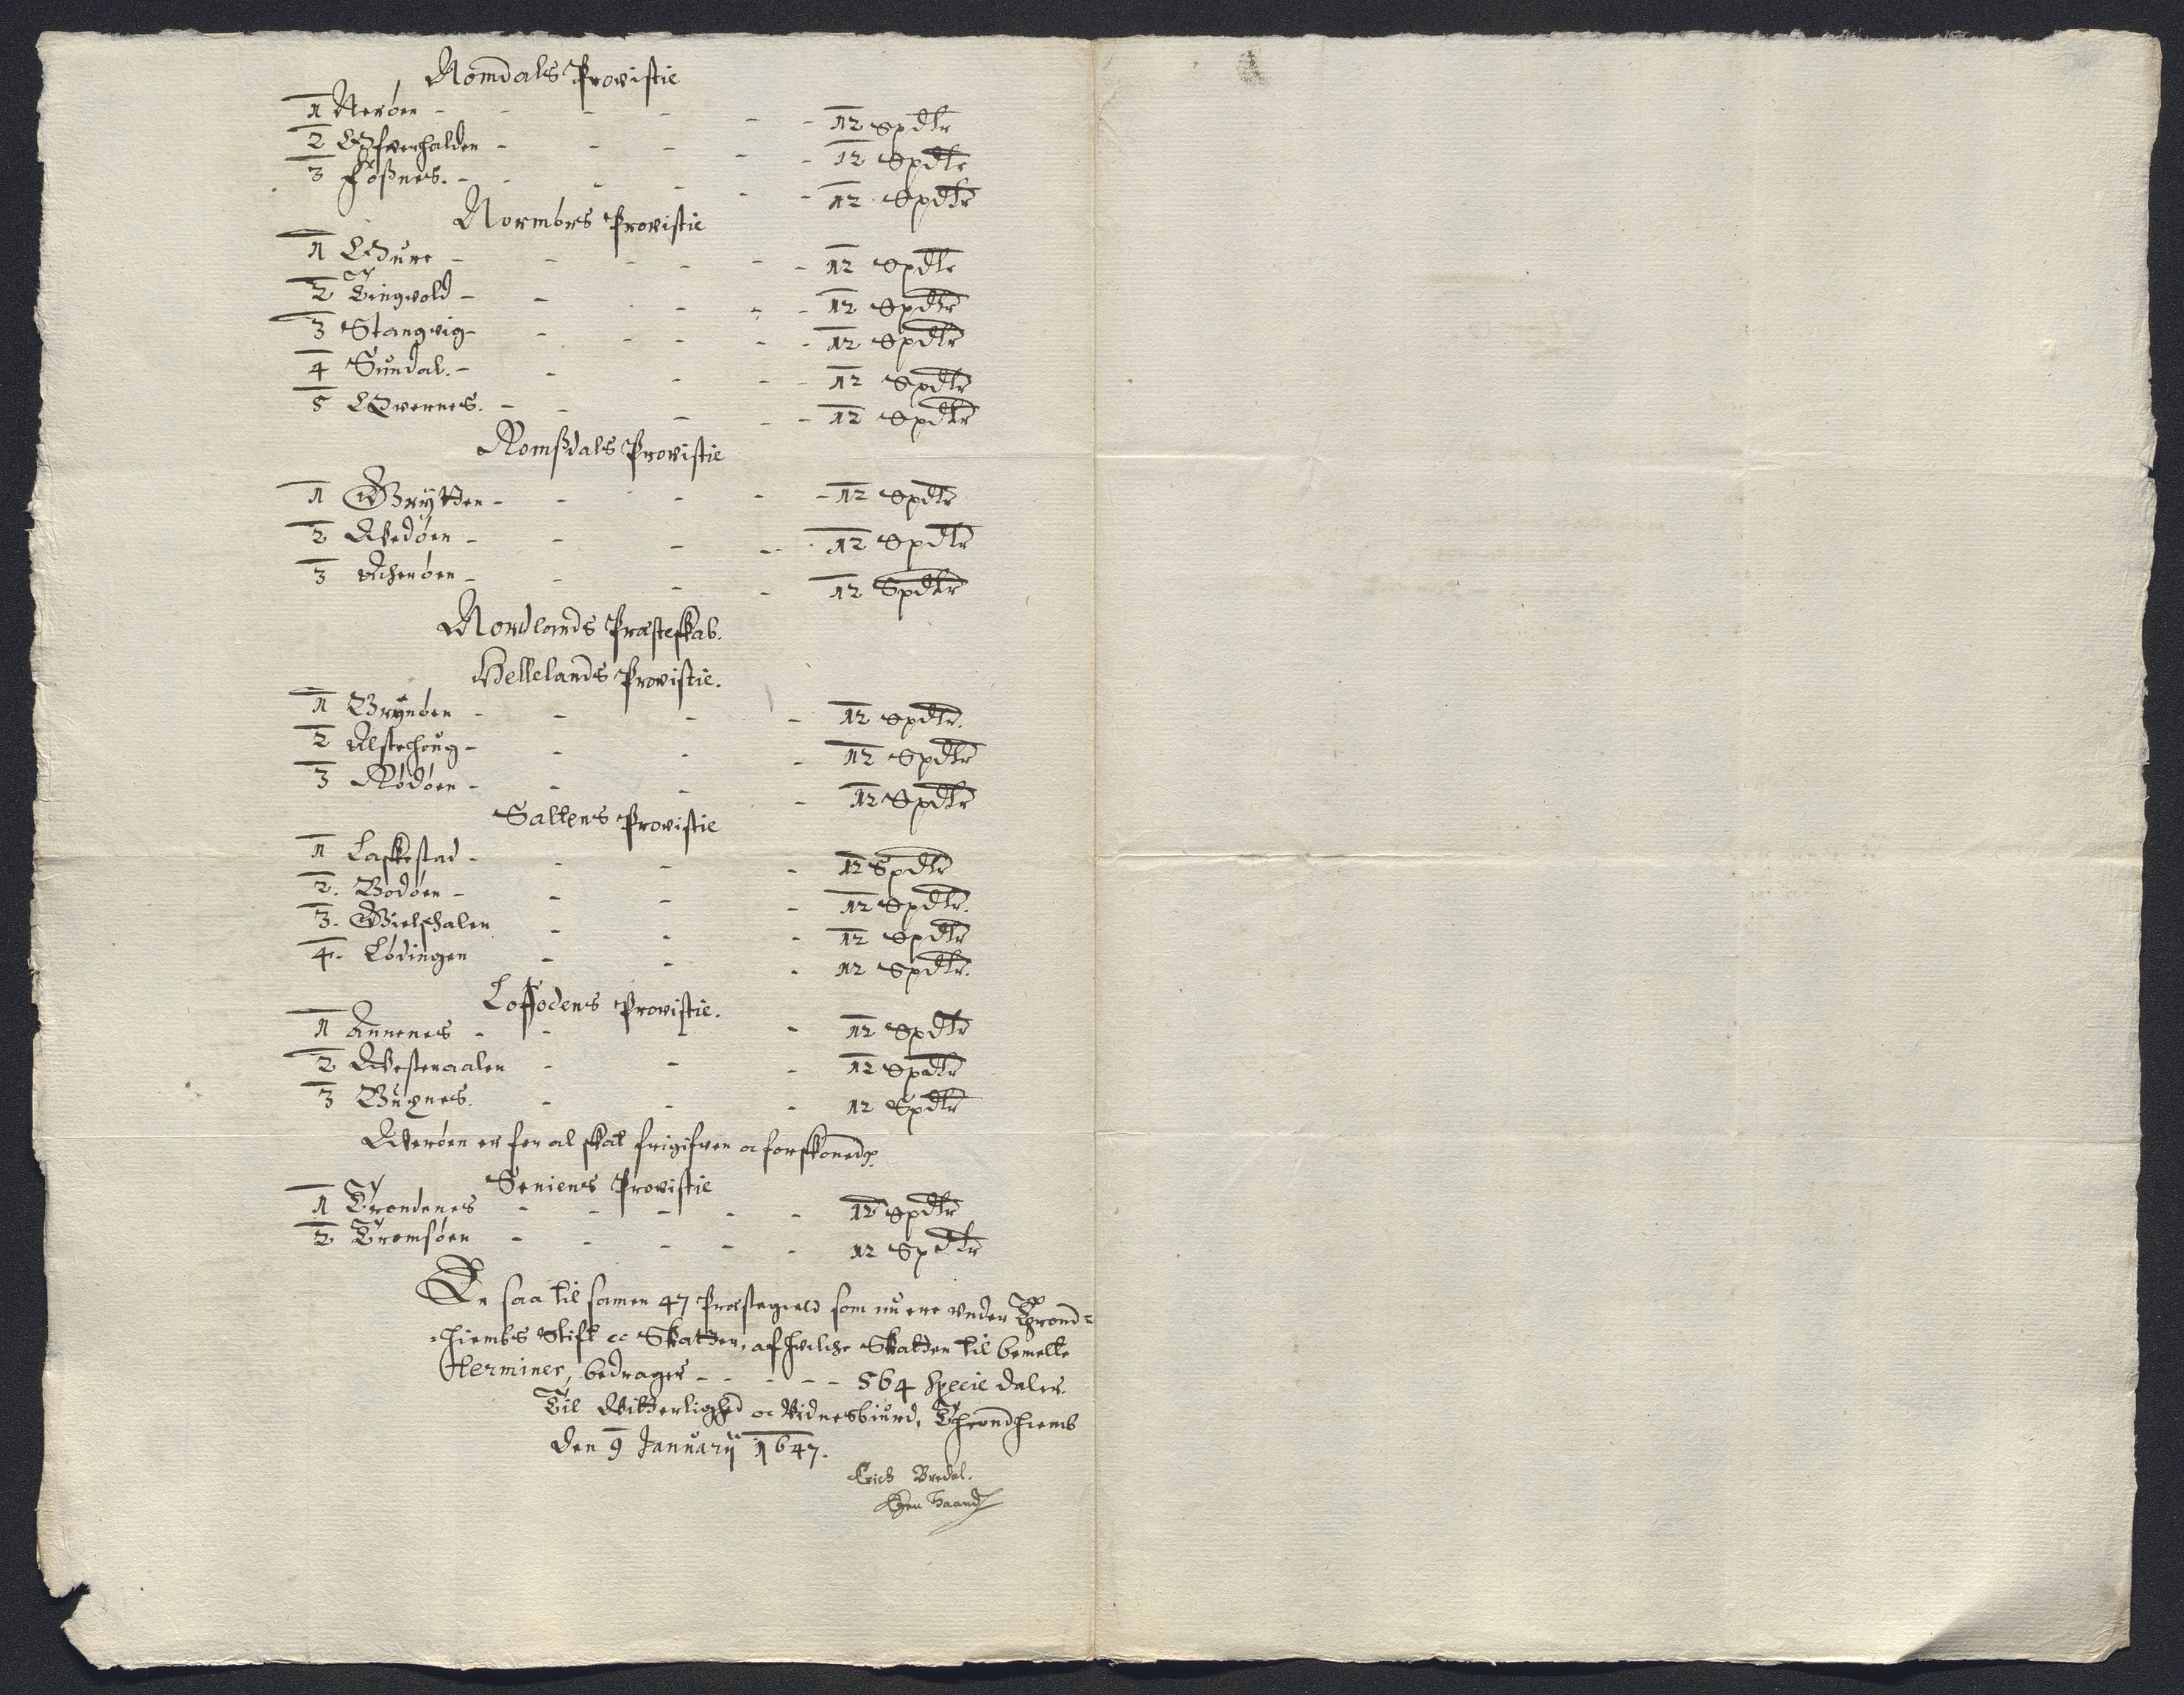 Nomdals Provistie
1 Nerøen - - - - - 12 Spdlr
2 Offverhalden - - - - - 12 Spdlr
3 Foßnes. - - - - - 12 Spdlr
Normørs Provistie
1 Œure - - - - - 12 Spdlr
2 Tingvold - - - - - 12 Spdlr
3 Stangvig - - - - - 12 Spdlr
4 Sundal. - - - - - 12 Spdlr
5 Qvernes. - - - - - 12 Spdlr
Romßdals Provistie
1 Grytten - - - - - 12 Spdlr
2 Wedøen - - - - 12 Spdlr
3 Acherøen - - - - 12 Spdlr
Nordlands Præsteskab.
Hellelands Provistie.
1 Brynøen - - - - 12 Spdlr.
2 Alstehoug - - - - 12 Spdlr
3 Rødøen - - - - 12 Spdlr
Saltens Provistie
1 Laskestad - - - - 12 Spdlr
2. Bodøen - - - - 12 Spdlr.
3. Gielschalen - - - 12 Spdlr
4. Lødingen - - - 12 Spdlr.
Loffodens Provistie.
1 Annenes - - - - 12 Spdlr
2 Westeraalen - - - 12 Spdlr
3 Buxnes. - - - 12 Spdlr
Werøen er for al skat frigifven oc forskoned
Seniens Provistie
1 Trondenes - - - - - 12 Spdlr
2 Tromsøen - - - - - 12 Spdlr
Er saa til samen 47 Præstegield som nu ere under Thrond=
=hiembs Stift oc Skatter, af hvilche Skatten til bemelte
Terminer, bedrages - - - - - 564 Specie daler.
Til Witterlighed oc Vidnesbiurd, Throndhiemb
den 9 Januarii 1647.
Erich Bredal.
Egen Haand